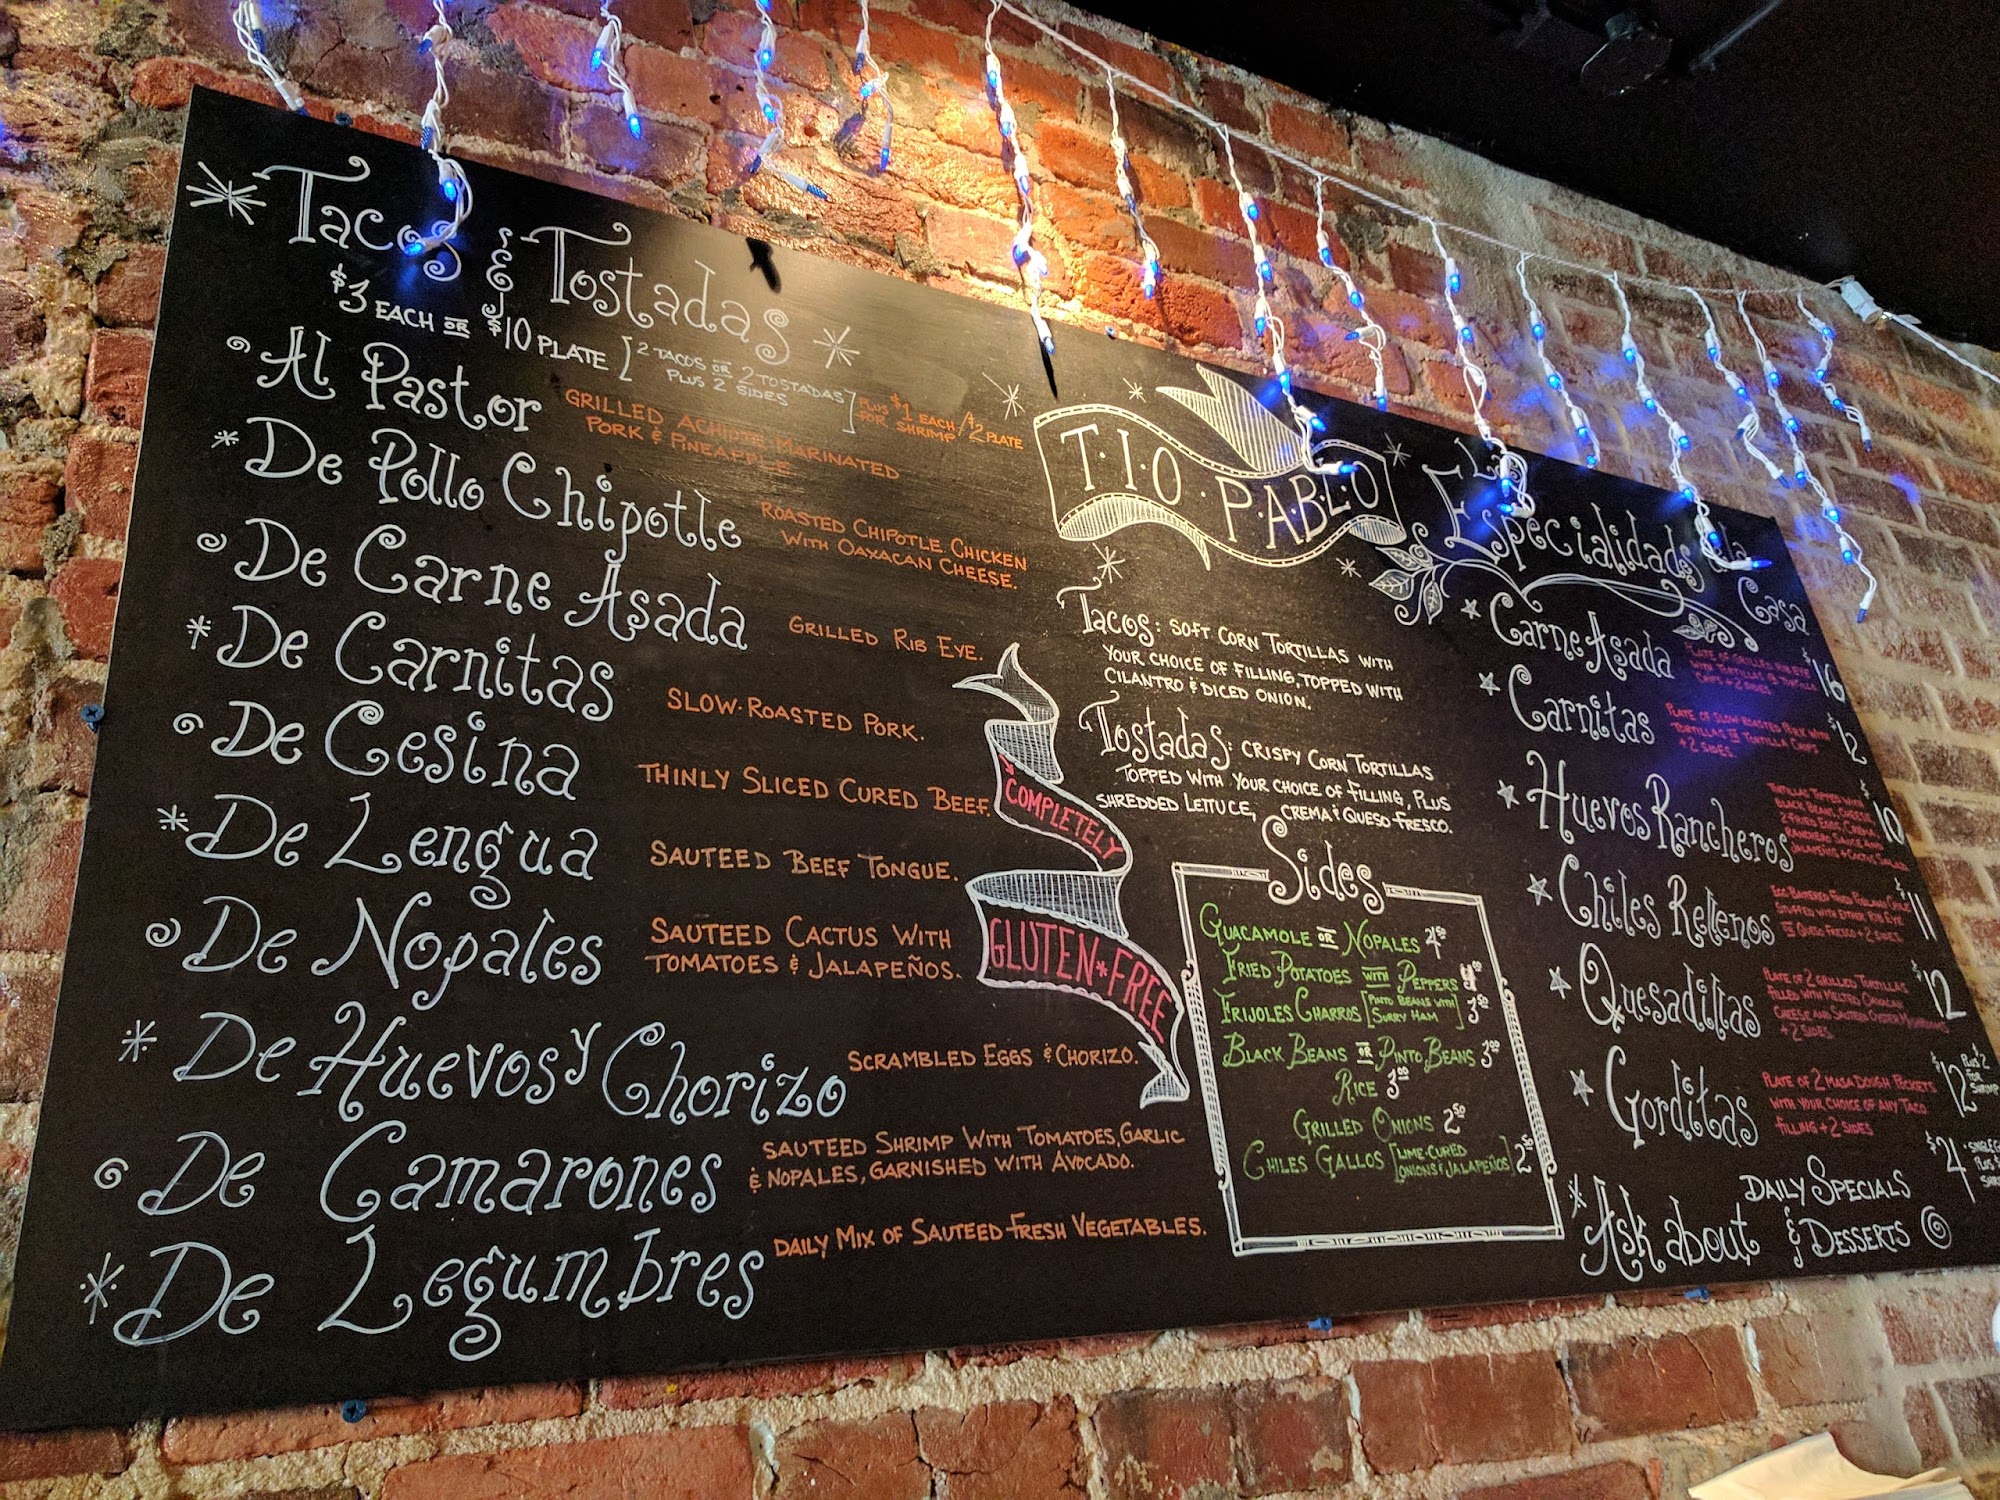 Tacos & Tostadas
$3 EACH OR $10 PLATE [2 TACOS OR 2 TOSTADAS PLUS 2 SIDES] PLUS $1 EACH / $2 PLATE FOR SHRIMP
Al Pastor
GRILLED ACHIOTE MARINATED
PORK & PINEAPPLE
De Pollo Chipotle
ROASTED CHIPOTLE CHICKEN
WITH OAXACAN CHEESE.
De Carne Asada
GRILLED RIB EYE.
De Carnitas
SLOW-ROASTED PORK.
De Cesina
THINLY SLICED CURED BEEF.
De Lengua
SAUTEED BEEF TONGUE.
De Nopales
SAUTEED CACTUS WITH
TOMATOES & JALAPEÑOS.
De Huevos y Chorizo
SCRAMBLED EGGS & CHORIZO.
De Camarones
SAUTEED SHRIMP WITH TOMATOES, GARLIC
& NOPALES, GARNISHED WITH AVOCADO.
De Legumbres
DAILY MIX OF SAUTEED FRESH VEGETABLES.
COMPLETELY
GLUTEN*FREE
T·I·O·P·A·B·L·O
Tacos: SOFT CORN TORTILLAS WITH
YOUR CHOICE OF FILLING, TOPPED WITH
CILANTRO & DICED ONION.
Tostadas: CRISPY CORN TORTILLAS
TOPPED WITH YOUR CHOICE OF FILLING, PLUS
SHREDDED LETTUCE, CREMA & QUESO FRESCO.
Sides
GUACAMOLE OR NOPALES 4.50
FRIED POTATOES WITH PEPPERS
FRIJOLES CHARROS [PINTO BEANS WITH SURRY HAM] 3.50
BLACK BEANS OR PINTO BEANS 3.00
RICE 3.00
GRILLED ONIONS 2.50
CHILES GALLOS [LIME-CURED ONIONS & JALAPEÑOS] 2.50
Especialidades de la Casa
Carne Asada
PLATE OF GRILLED RIB EYE
WITH TORTILLAS OR TORTILLA
CHIPS + 2 SIDES.
$16
Carnitas
PLATE OF SLOW ROASTED PORK WITH
TORTILLAS OR TORTILLA CHIPS
+ 2 SIDES.
$12
Huevos Rancheros
TORTILLAS TOPPED WITH
BLACK BEANS, CHEESE
2 FRIED EGGS, CREMA
RANCHERO SAUCE AND
JALAPEÑOS + CACTUS SALAD
$10
Chiles Rellenos
EGG BATTERED FRIED POBLANO CHILE
STUFFED WITH EITHER RIB EYE
OR QUESO FRESCO + 2 SIDES.
$11
Quesadillas
PLATE OF 2 GRILLED TORTILLAS
FILLED WITH MELTED OAXACAN
CHEESE AND SAUTEED OYSTER MUSHROOMS
+ 2 SIDES.
$12
Gorditas
PLATE OF 2 MASA DOUGH POCKETS
WITH YOUR CHOICE OF ANY TACO
FILLING + 2 SIDES
$12 PLUS $2 FOR SHRIMP
$4
Ask about DAILY SPECIALS
& DESSERTS